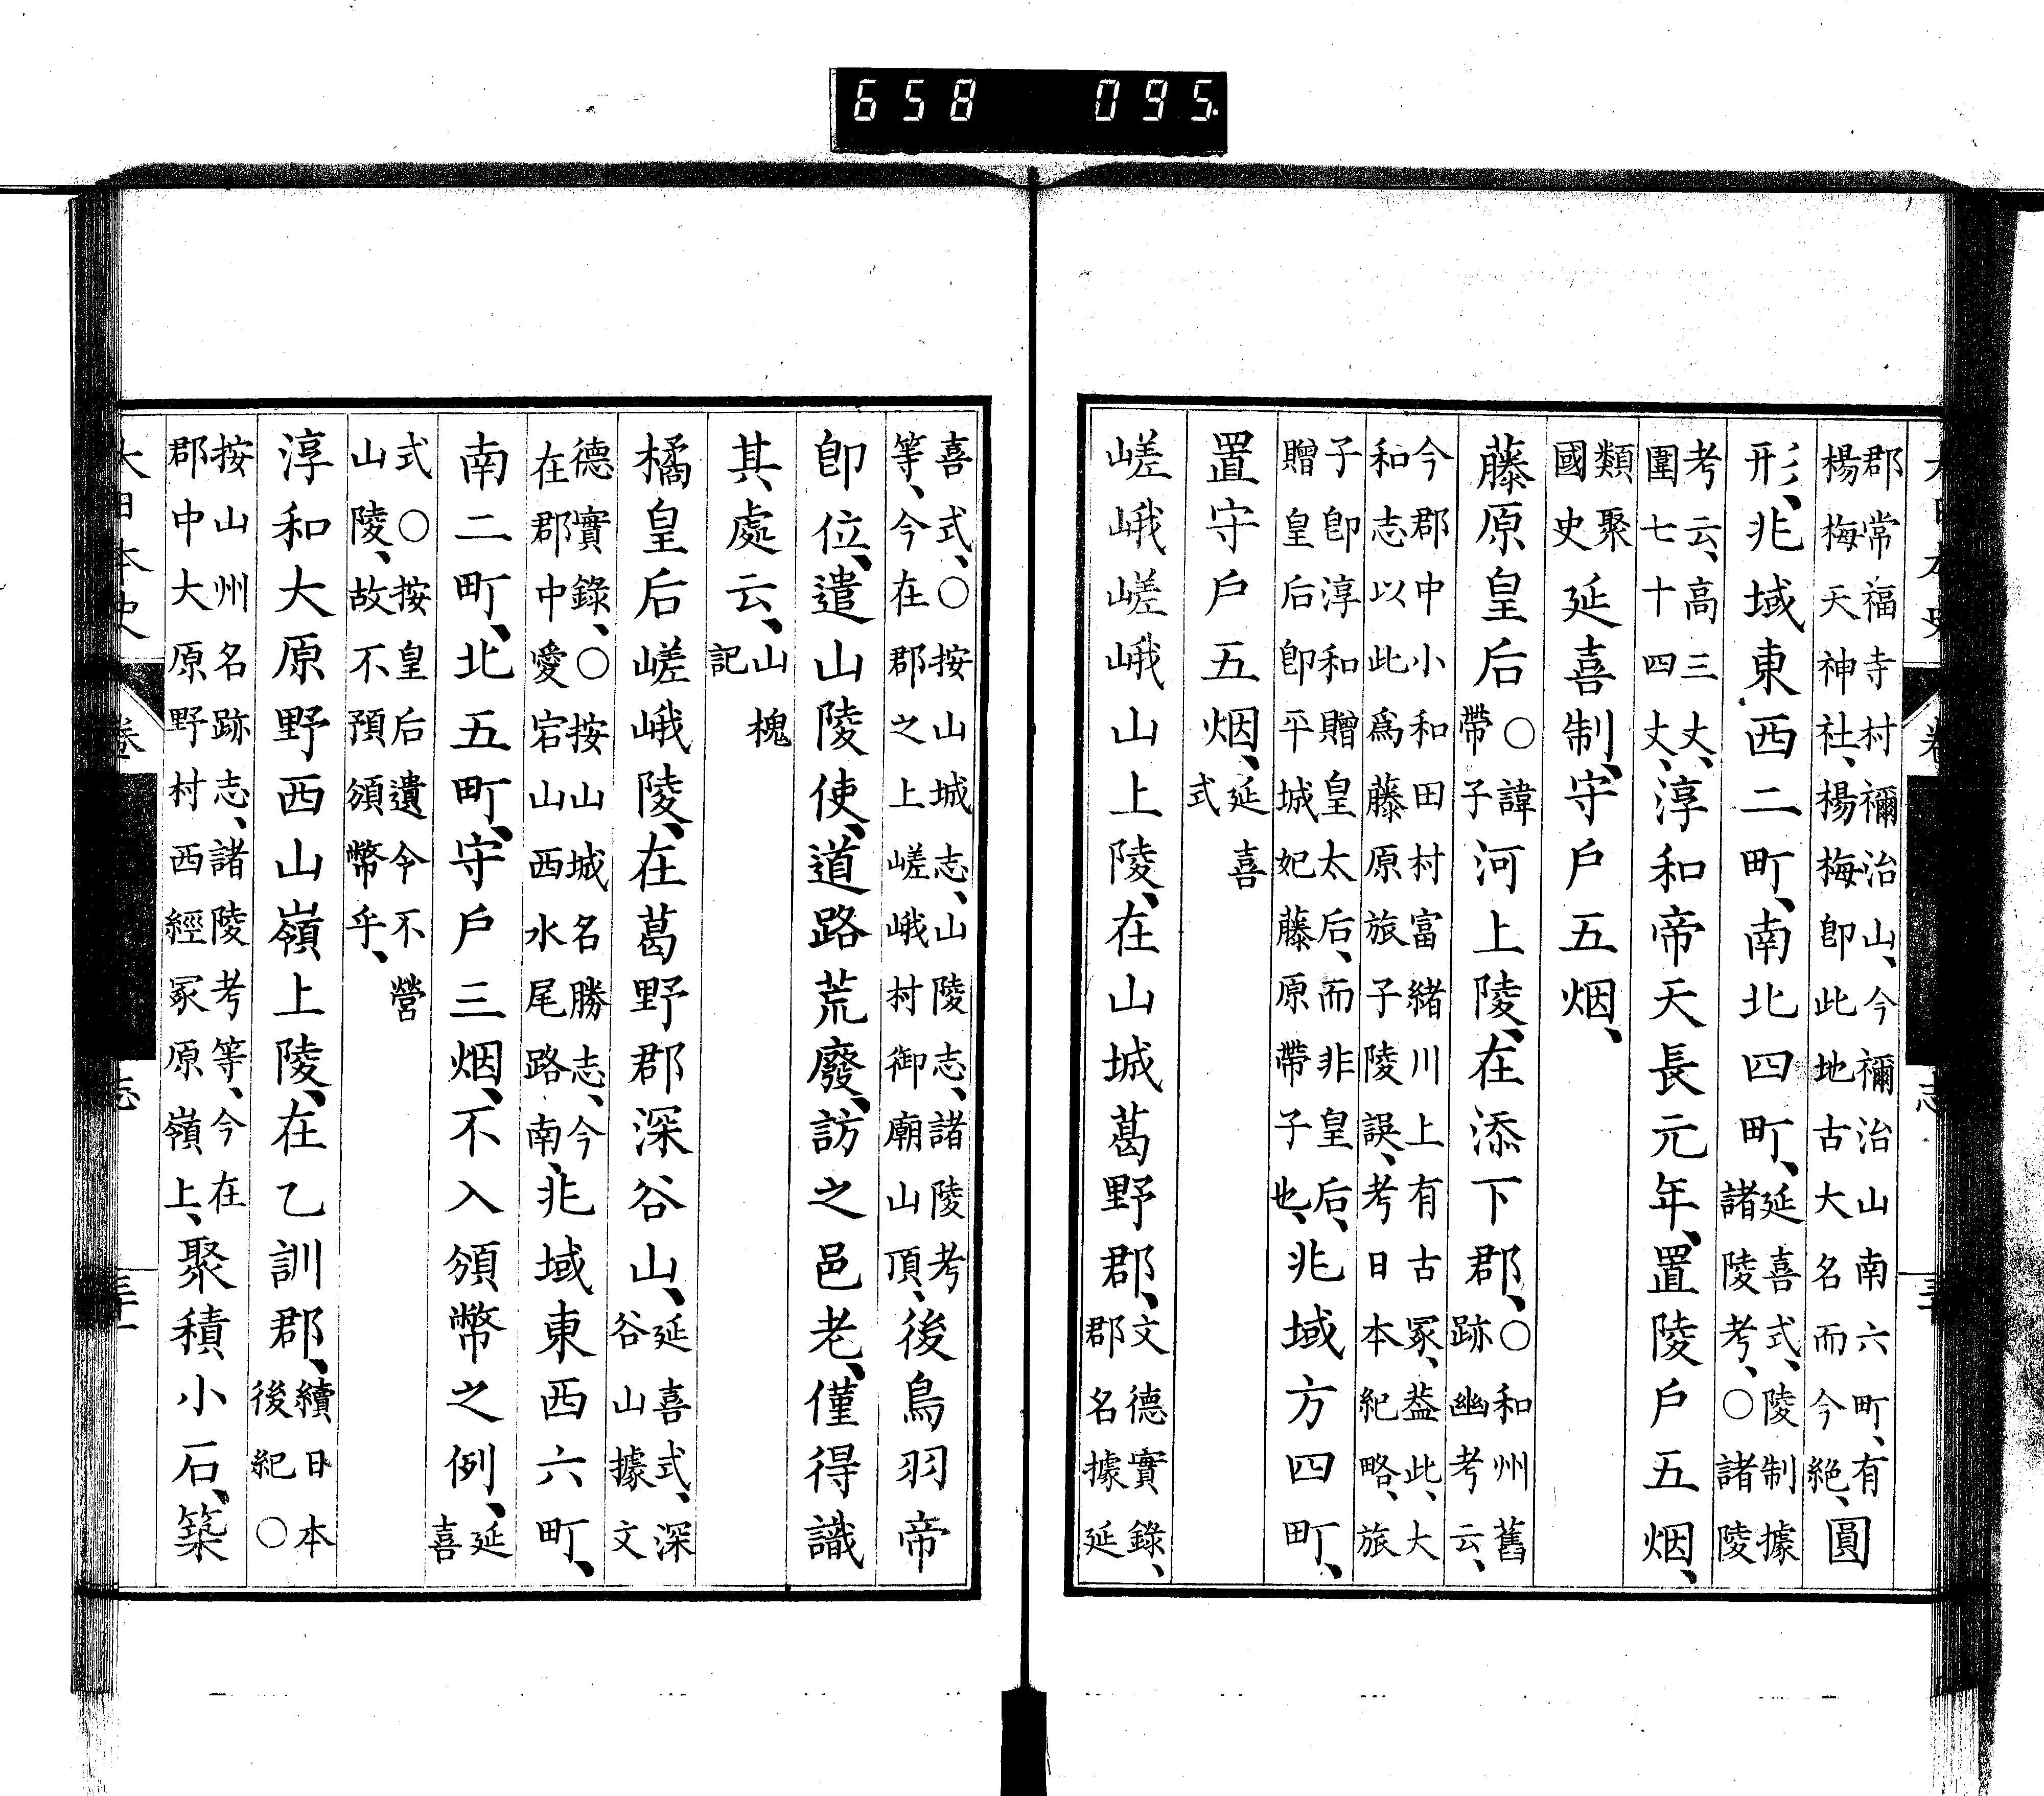 658 095
郡常福寺村禰治山、今禰治山南六町、有
楊梅天神社、楊梅卽此地古大名而今絶、圓
形、兆域東西二町、南北四町、延喜式、陵制據
諸陵考、○諸陵
考云、高三丈、
圍七十四丈、淳和帝天長元年、置陵戶五烟、
類聚
國史延喜制、守戶五烟、
藤原皇后○諱
帶子河上陵、在添下郡、○和州舊
跡幽考云、
今郡中小和田村富緒川上有古冢、葢此、大
和志以此爲藤原旅子陵誤、考日本紀略、旅
子卽淳和贈皇太后、而非皇后、
贈皇后卽平城妃藤原帶子也、兆域方四町、
置守戶五烟、延喜
式
嵯峨嵯峨山上陵、在山城葛野郡、文德實錄、
郡名據延
喜式、○按山城志、山陵志、諸陵考
等、今在郡之上嵯峨村御廟山頂、後鳥羽帝
卽位、遣山陵使、道路荒廢、訪之邑老、僅得識
其處云、山槐
記
橘皇后嵯峨陵、在葛野郡深谷山、延喜式、深
谷山據文
德實錄、○按山城名勝志、今
在郡中愛宕山西水尾路南、兆域東西六町、
南二町、北五町、守戶三烟、不入頒幣之例、延
喜
式○按皇后遺令不營
山陵、故不預頒幣乎、
淳和大原野西山嶺上陵、在乙訓郡、續日本
後紀○
按山州名跡志、諸陵考等、今在
郡中大原野村西經冢原嶺上、聚積小石、築
大日本史
卷
志